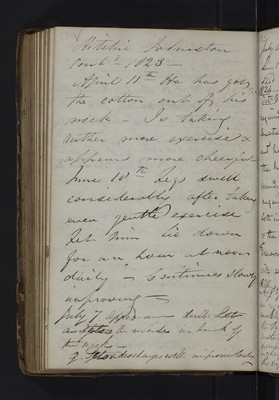 Ritchie Johnston
Contd. 1823 –
April 11th He has got
the cotton out of his
neck – Is taking
rather more exercise &
appears more cheerful
June 10th Legs swell
considerably after taking
even gentle exercise
Let him lie down
for an hour at noon
daily – Continues slowly
improving –
July 7 appears dull Let
be made on back of
neck –
discharges well